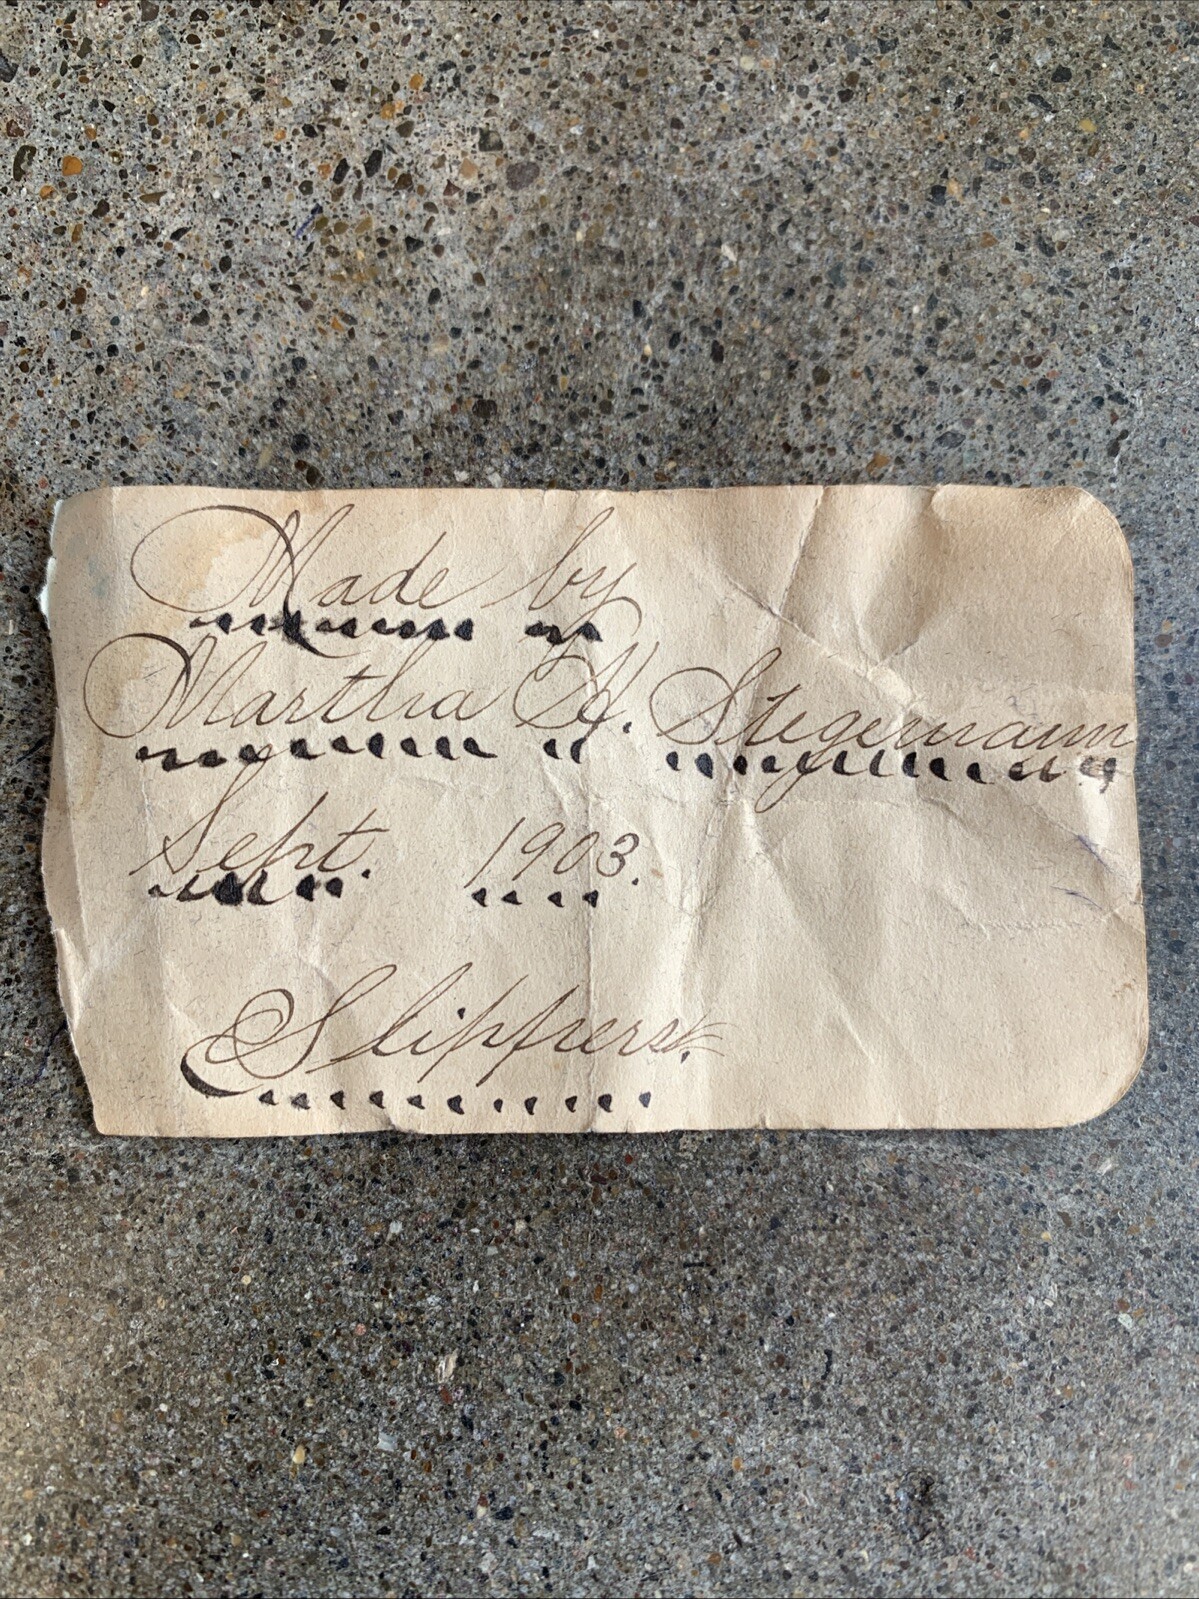 Made by
Martha H. Stegemann
Sept. 1903.
Slippers.